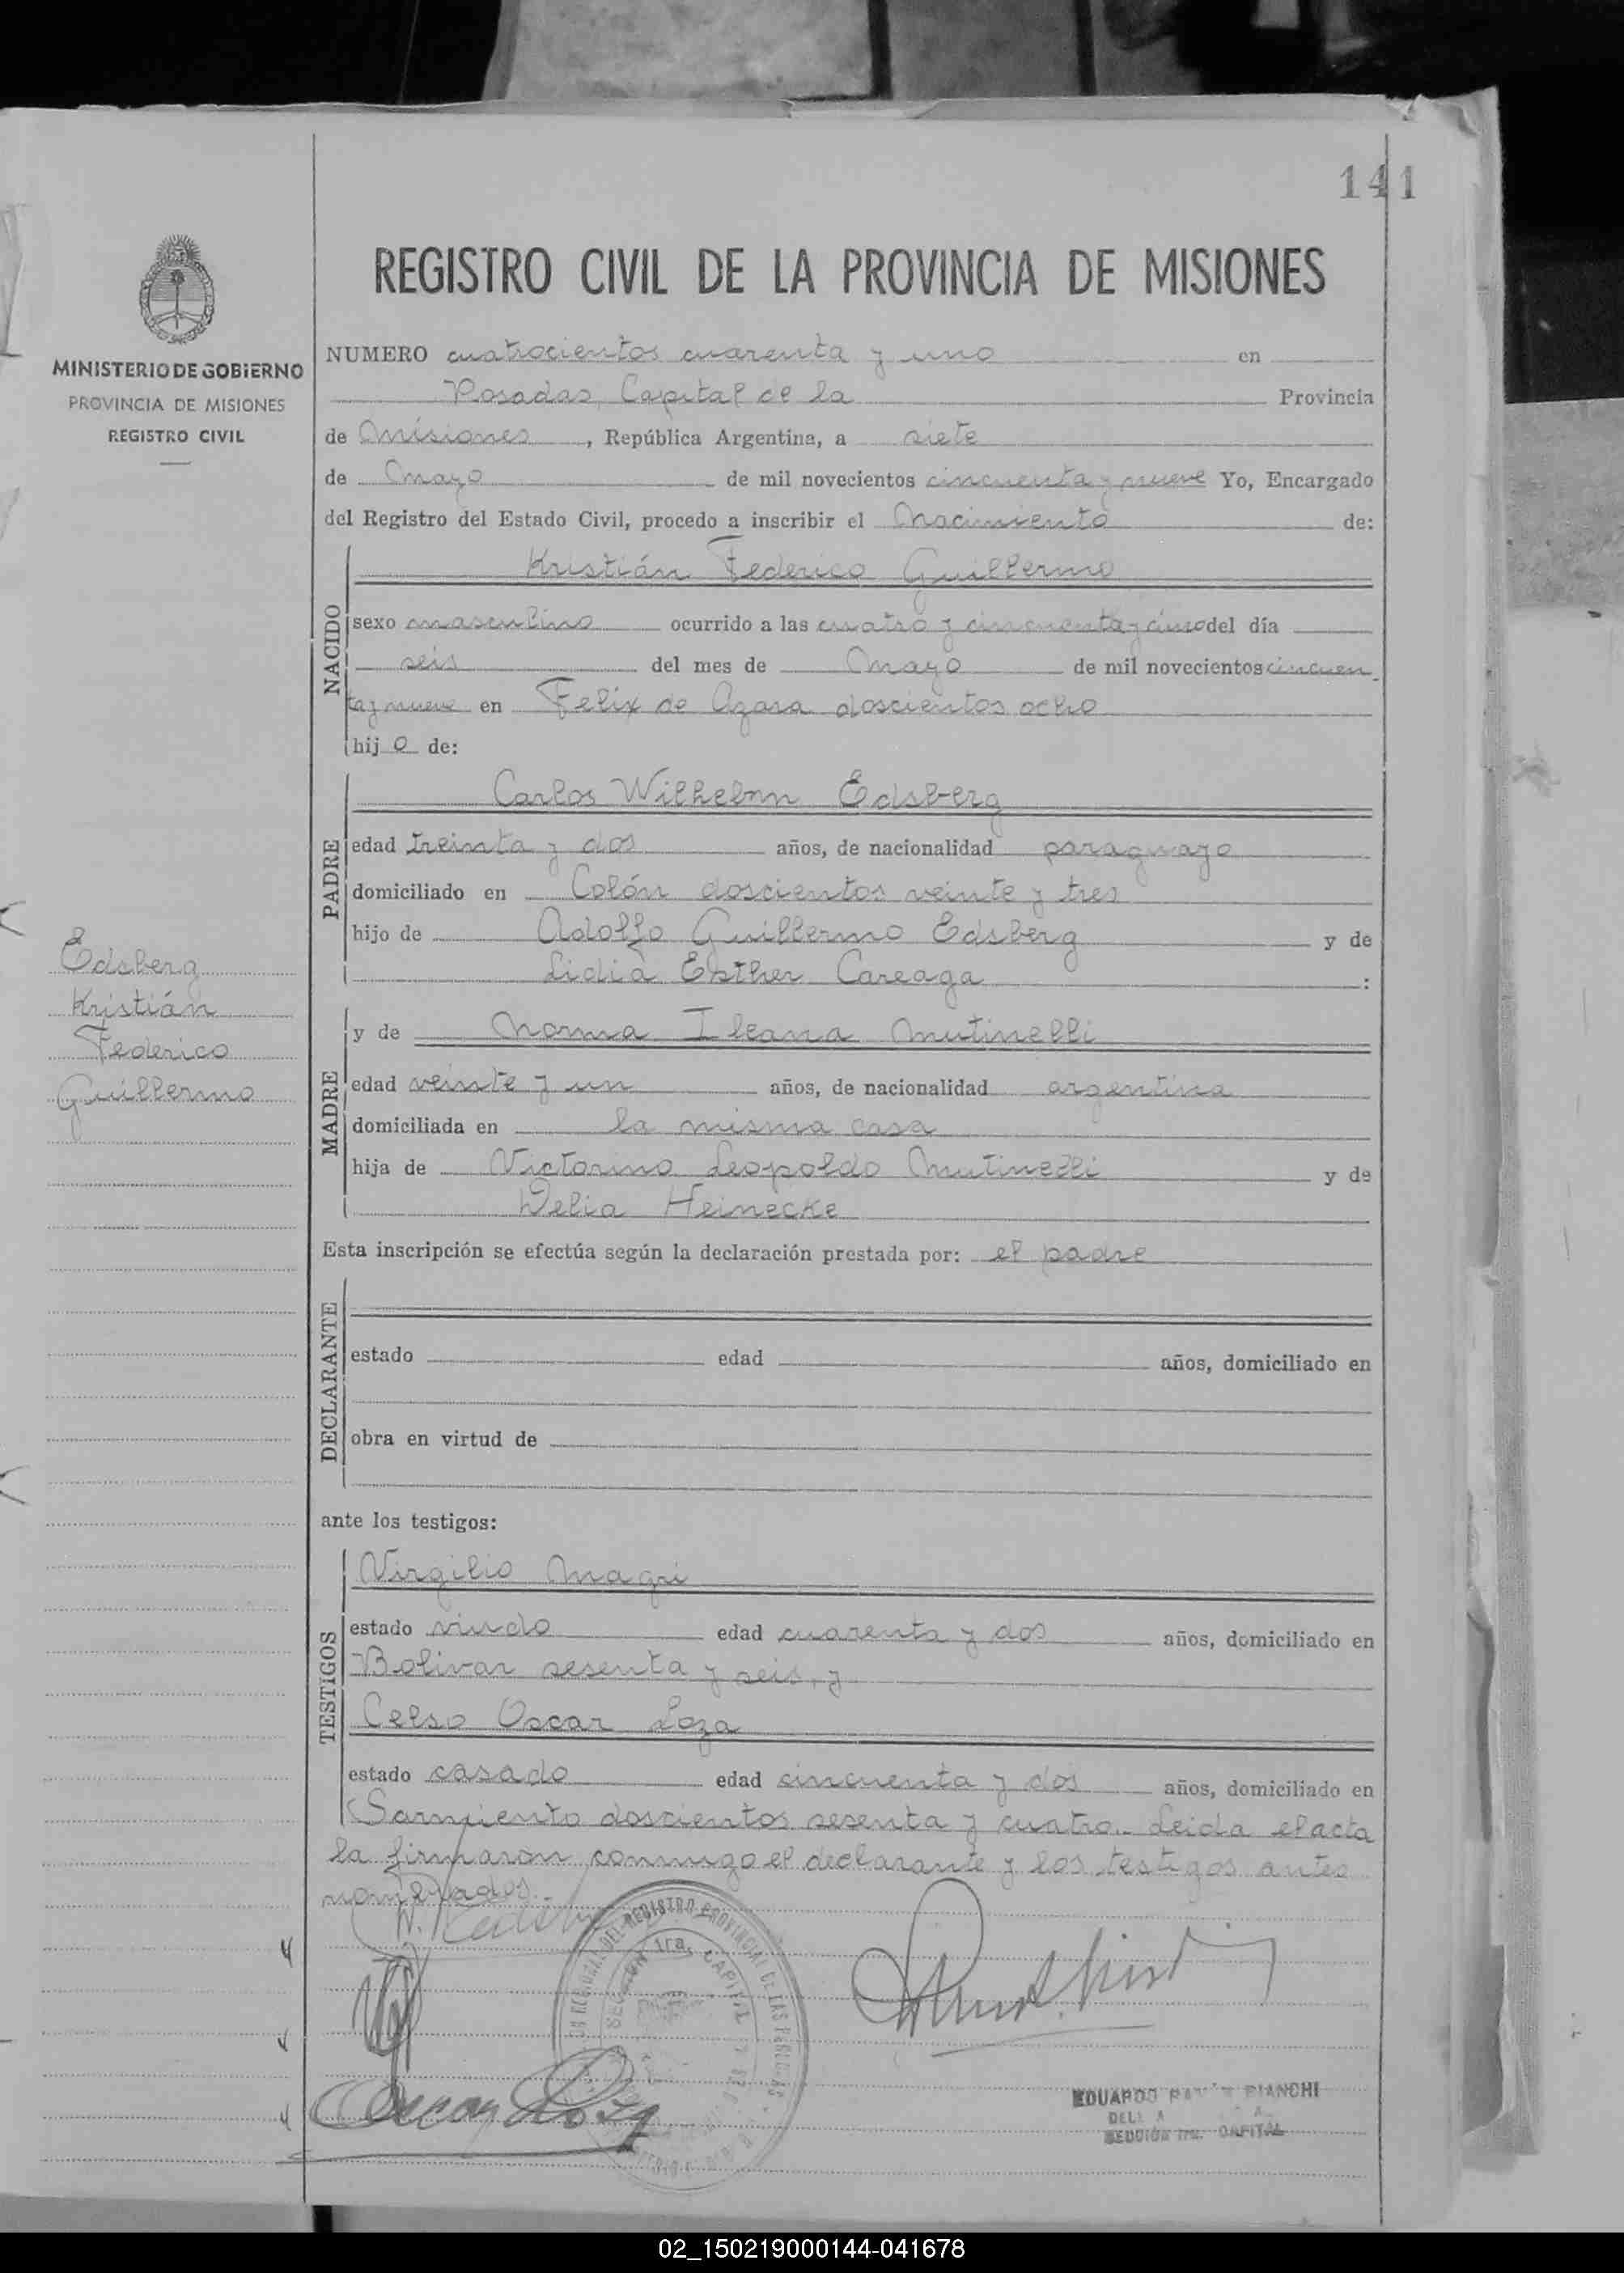 141
REGISTRO CIVIL DE LA PROVINCIA DE MISIONES
MINISTERIO DE GOBIERNO
PROVINCIA DE MISIONES
REGISTRO CIVIL
NUMERO cuatrocientos cuarenta y uno en
Posadas, Capital de la Provincia
de Misiones, República Argentina, a siete
de Mayo de mil novecientos cincuenta y nueve Yo, Encargado
del Registro del Estado Civil, procedo a inscribir el Nacimiento de:
NACIDO
Kristián Federico Guillermo
sexo masculino ocurrido a las cuatro y cincuenta y cinco del día
seis del mes de Mayo de mil novecientos cincuen
ta y nueve en Felix de Azara doscientos ocho
hijo de:
PADRE
Carlos Wilhelm Edsberg
edad treinta y dos años, de nacionalidad paraguayo
domiciliado en Colón doscientos veinte y tres
hijo de Adolfo Guillermo Edsberg y de
Lidia Esther Careaga :
Edsberg
Kristián
Federico
Guillermo
MADRE
y de Norma Ileana Mutinelli
edad veinte y un años, de nacionalidad argentina
domiciliada en la misma casa
hija de Victorino Leopoldo Mutinelli y de
Delia Heinecke
Esta inscripción se efectúa según la declaración prestada por: el padre
DECLARANTE
estado edad años, domiciliado en
obra en virtud de
ante los testigos:
TESTIGOS
Virgilio Magri
estado viudo edad cuarenta y dos años, domiciliado en
Bolivar sesenta y seis, y
Celso Oscar Loza
estado casado edad cincuenta y dos años, domiciliado en
Sarmiento doscientos sesenta y cuatro.- Leida el acta
la firmaron conmigo el declarante y los testigos antes
nombrados.-
Oscar Loza
SECCION 1ra. CAPITAL
EDUARDO BIANCHI
SECCION 1ra. CAPITAL
02_150219000144-041678